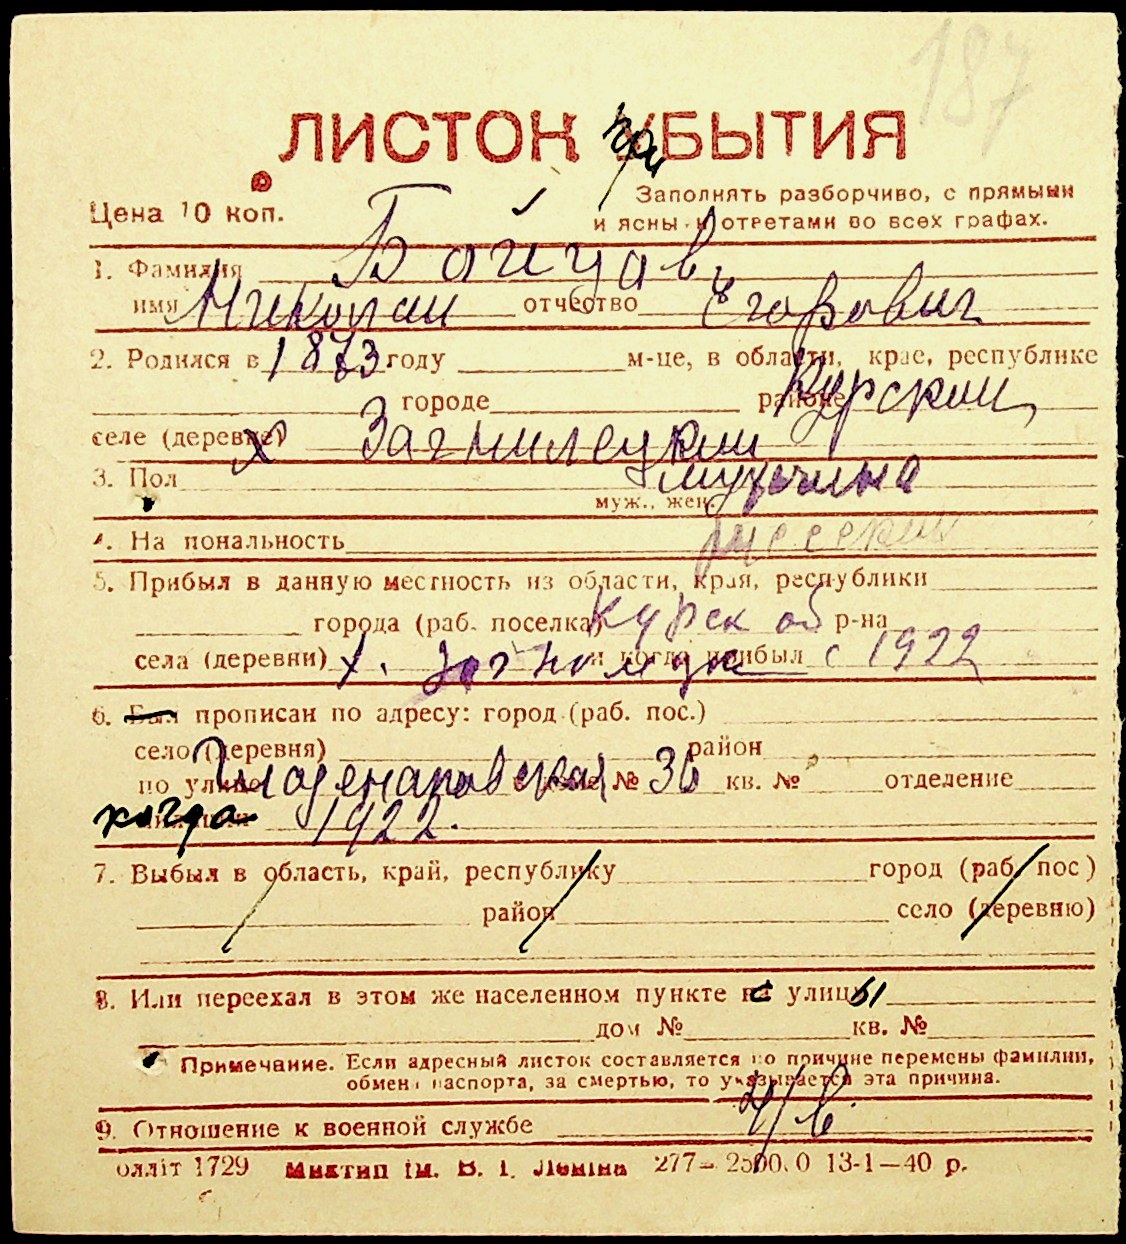 187
ЛИСТОК при УБЫТИЯ
Цена 10 коп.
Заполнять разборчиво, с прямыми
и ясны и ответами во всех графах.
1. Фамилия Бойцов
имя Николай отчество Егорович
2. Родился в 1873 году м-це, в области, крае, республике
городе районе Курской
селе (деревне) х Загнилецкий
3. Пол мужчина
муж., жен.
4. На иональность русский
5. Прибыл в данную местность из области, края, республики
города (раб. поселка) Курск об р-на
села (деревни) х. и когда прибыл с 1922
6. Был прописан по адресу: город (раб. пос.)
село (деревня) район
по улице № 36 кв. № отделение
когда 1922.
7. Выбыл в область, край, республику город (раб. пос)
район село (деревню)
8. Или переехал в этом же населенном пункте с улицы
дом № кв. №
Примечание. Если адресный листок составляется по причине перемены фамилии,
обмен паспорта, за смертью, то указывается эта причина.
9. Отношение к военной службе н/в
олліт 1729 Миктип ім. В. І. Леніна 277— 13-1—40 р.